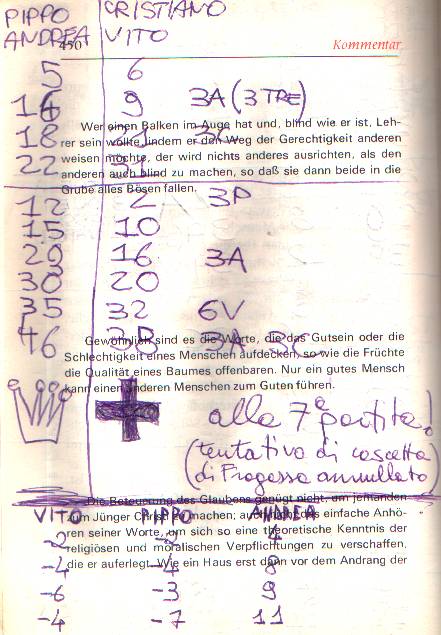 PIPPO CRISTIANO
ANDREA VITO
450 Kommentar
5 6
16 9 3A (3 TRE)
Wer einen Balken im Auge hat und, blind wie er ist, Leh-
18 21
rer sein wollte, indem er den Weg der Gerechtigkeit anderen
weisen möchte, der wird nichts anderes ausrichten, als den
22
anderen auch blind zu machen, so daß sie dann beide in die
Grube alles Bösen fallen.
12 2 3P
15 10
29 16 3A
30 20
35 32 6V
46 38 3A 3C
Gewöhnlich sind es die Worte, die das Gutsein oder die
Schlechtigkeit eines Menschen aufdecken, so wie die Früchte
die Qualität eines Baumes offenbaren. Nur ein gutes Mensch
kann einen anderen Menschen zum Guten führen.
alla 7ª partita!
(tentativo di
di Frogassa annullato)
Die Beteuerung des Glaubens genügt nicht, um jemanden
VITO PIPPO ANDREA
zum Jünger Christi zu machen; auch nicht das einfache Anhö-
ren seiner Worte, um sich so eine theoretische Kenntnis der
-2 -2 4
religiösen und moralischen Verpflichtungen zu verschaffen,
die er auferlegt. Wie ein Haus erst dann vor dem Andrang der
-4 -4 8
-6 -3 9
-4 -7 11